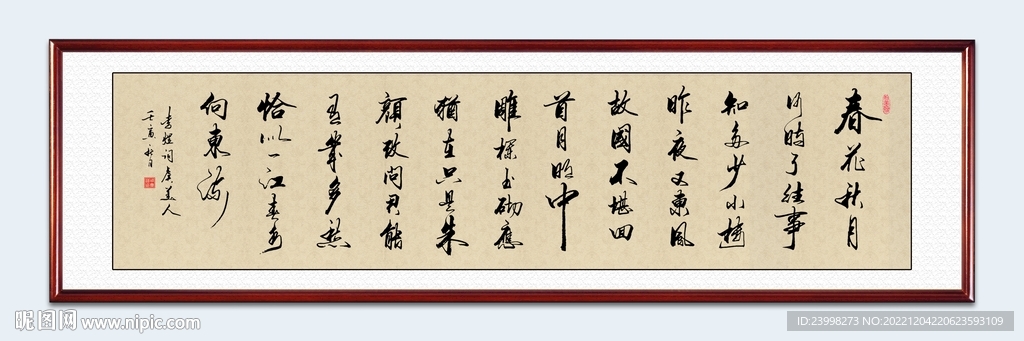 春花秋月
何時了往事
知多少小樓
昨夜又東風
故國不堪回
首月明中
雕欄玉砌應
猶在只是朱
顏改問君能
有幾多愁
恰似一江春水
向東流
李煜詞虞美人
壬寅秋月
昵图网 www.nipic.com
ID:23998273 NO:20221204220623593109